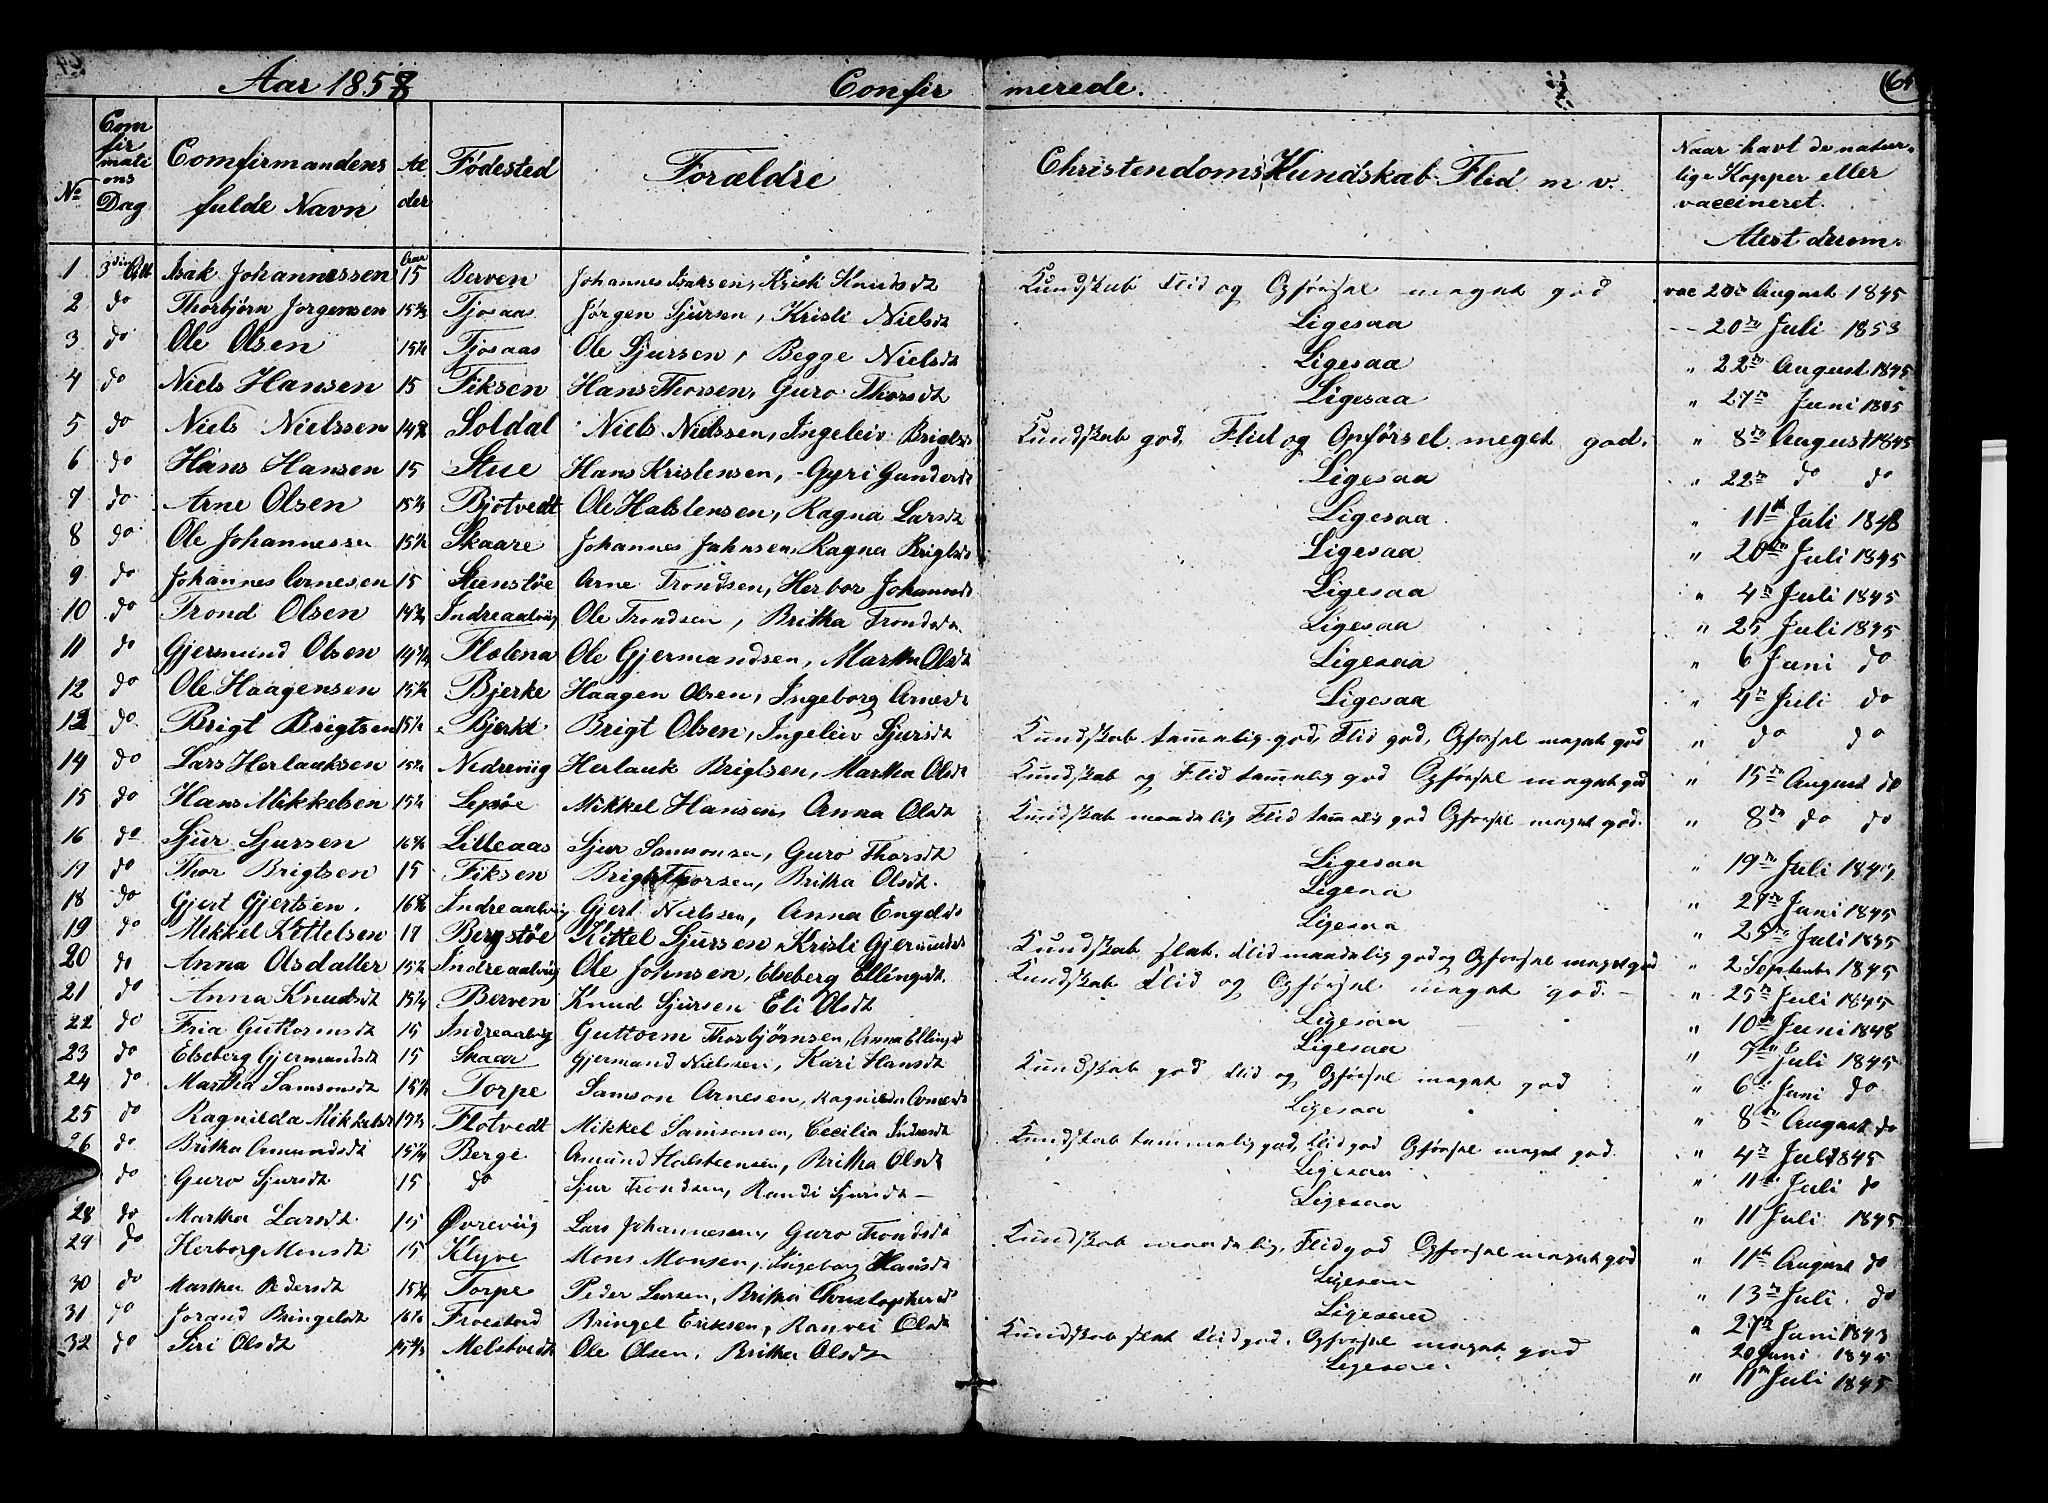 Aar 1858 Confirmerede. 65
No Comfirmations Dag Comfirmandens fulde Navn Alder Fødested Forældre Christendoms Kundskab Flid m v. Naar havt de naturlige Kopper eller vaccineret. Atest derom.
1 3die Isak Johannessen 15 Berven Johannes Isaksen, Kristi Knudsdt Kundskab Flid og Opførsel meget god vac 20de August 1845
2 do Thorbjørn Jørgensen Tjosaas Jørgen Sjursen, Kristi Nielsdt Ligesaa 20de Juli 1853
3 do Ole Olsen Tjosaas Ole Sjursen, Begge Nielsdt Ligesaa " 22de August 1845
4 do Niels Hansen 15 Fiksen Hans Thorsen, Guro Thorsdt Ligesaa " 27de Juni 1845
5 do Niels Nielssen Soldal Niels Nielssen, Ingeleiv Brigtsdt Kundskab god, Flid og Opførsel meget god. " 8de August 1845
6 do Hans Hansen 15 Stue Hans Kristensen, Gyri Gundersdt Ligesaa " 22de do do
7 do Arne Olsen Bjotvedt Ole Halstensen, Ragna Larsdt Ligesaa " 11te Juli 1848
8 do Ole Johannessen 15½ Skaare Johannes Jahnsen, Ragna Brigtsdt Ligesaa " 20de Juli 1845
9 do Johannes Arnesen 15 Steenstøe Arne Trondsen, Herbor Johannsdt Ligesaa " 4de Juli 1845
10 do Trond Olsen Indreaalvig Ole Trondsen, Britha Trondsdt. Ligesaa " 25 Juli 1845
11 do Gjermund Olsen Flotena Ole Gjermandsen, Martha Olsdt Ligesaa " 6 Juni do
12 do Ole Haagensen Bjerke Haagen Olsen, Ingeborg Arnesdt Ligesaa " 4de Juli do
13 do Brigt Brigtsen 15½ Bjerke Brigt Olsen, Ingeleiv Sjursdt Kundskab tammelig god, Flid god, Opførsel meget god " do do
14 do Lars Herlauksen Nedreviig Herlauk Brigtsen, Martha Olsdt Kundskab og Flid tammelig god Opførsel meget god " 15de August do
15 do Hans Mikkelsen Lepsøe Mikkel Hansen Anna Olsdt Kundskab maadelig Flid tammelig god Opførsel meget god. " 8de do do
16 do Sjur Sjursen Lilleaas Sjur Samsonsen, Guro Thorsdt Ligesaa " 19de Juli
17 do Thor Brigtsen 15 Fiksen Brigt Thorsen, Britha Olsdt. Ligesaa " 27de Juni 1845
18 do Gjert Gjertsen. Indreaalvig Gjert Nielssen, Anna Engelsdt Ligesaa " 25de Juli 1845
19 do Mikkel Kittelsen 17 Bergstøe Kittel Sjursen, Kristi Gjermundsdt Kundskab slat. Flid maadelig god og Opførsel meget god " 2 September 1845
20 do Anna Olsdatter Indreaalvig Ole Johnsen, Elseberg Ellingsdt. Kundskab Flid og Opførsel meget god. " 25de Juli 1845
21 do Anna Knudsdt Berven Knud Sjursen Eli Olsdt Ligesaa " 10de Juni 1848
22 do Fria Guttormsdt 15 Indreaalvig Guttorm Thorbjørnsen, Anna Ellingsdt Ligesaa " 7de Juli 1845
23 do Elseberg Gjermandsdt 15 Skaar Gjermand Nielssen, Kari Hansdt Kundskab god, Flid og Opførsel meget god " 6te Juni do
24 do Martha Samsonsdt 15½ Torpe Samson Arnesen, Ragnilda Arnesdt Ligesaa " 8de August do
25 do Ragnilda Mikkelsdt Flotvedt Mikkel Samsonsen, Cecilia Indresdt Kundskab tammelig god, Flid god Opførsel meget god. " 4de Juli 1845
26 do Britha Amundsdt Berge Amund Halsteensen, Britha Olsdt Ligesaa " 11te Juli do
do Guro Sjursdt 15 do Sjur Trondsen, Randi Sjursdt Ligesaa " 11 Juli 1845
28 do Martha Larsdt 15 Øvreviig Lars Johannesen, Guro Trondsdt Kundskab maadelig, Flid god Opførsel meget god " 11te August do
29 do Herborg Monsdt 15 Klyve Mons Monsen, Ingeborg Hansdt Ligesaa " 13de Juli do
30 do Martha Pedersdt Torpe Peder Larsen, Britha Christophersdt Ligesaa " 27de Juni 1843
31 do Jorand Bringelsdt Froestad Bringel Eriksen, Ranvei Olsdt Kundskab slat Flid god. Opførsel meget god 20 Juni 1845
32 do Siri Olsdt Melstvedt Ole Olsen, Britha Olsdt Ligesaa " 11te Juli 1845